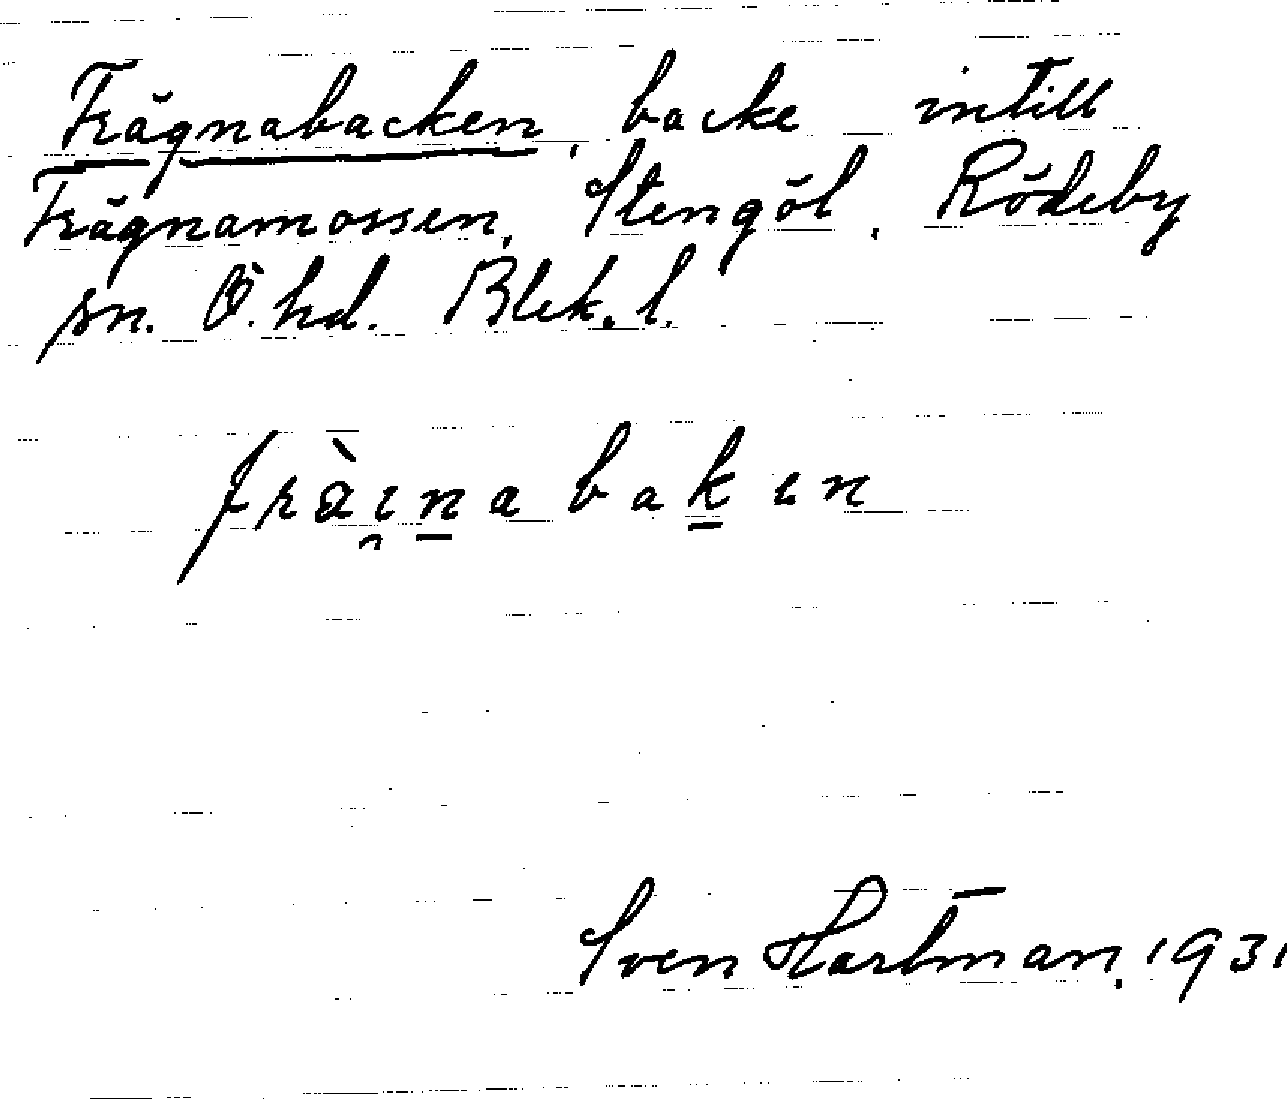 Frägnabacken, backe intill
Frägnamossen, Stengöl, Rödeby
sn. Ö. hd. Blek. l.
fràı̯n̲abak̲ın
Sven Hartman, 1931